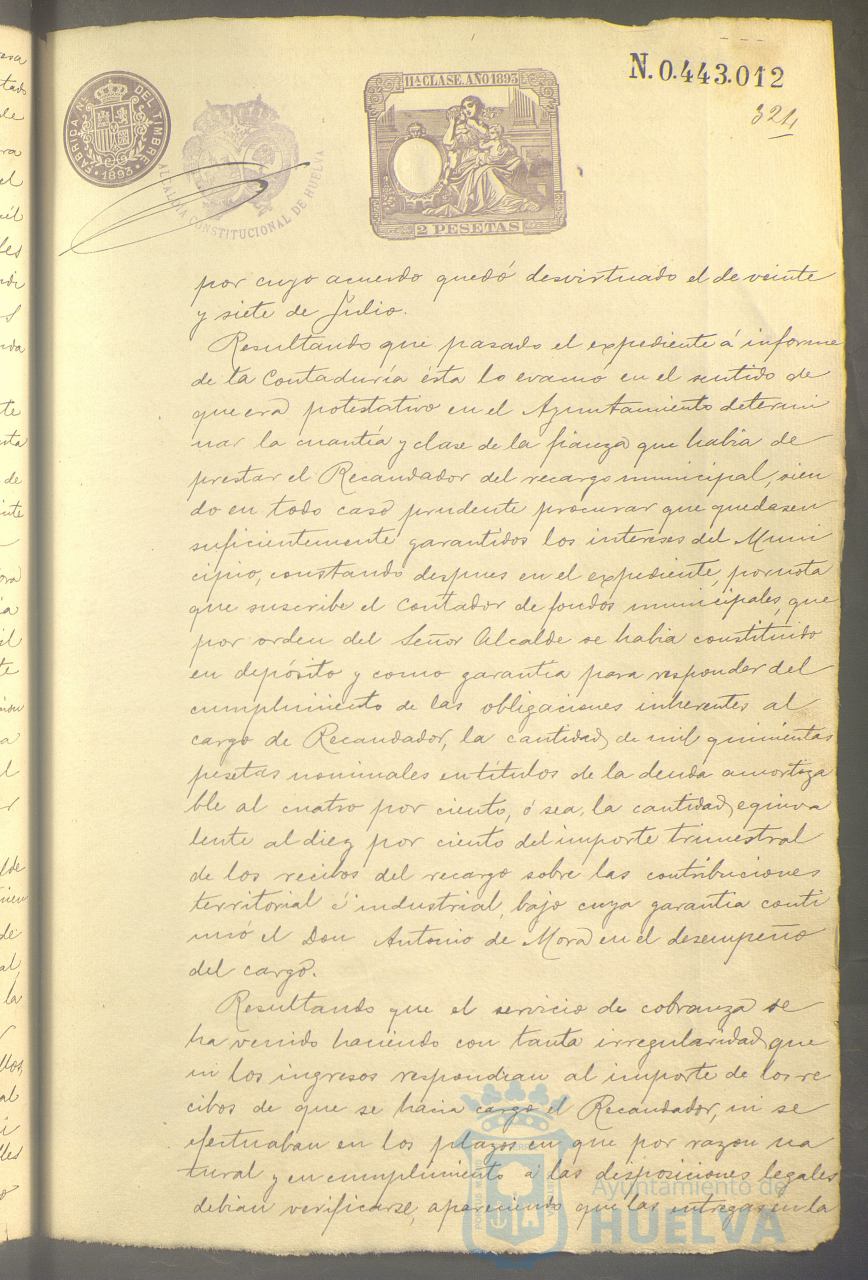 FÁBRICA N. DEL TIMBRE
· 1893 ·
ALCALDÍA CONSTITUCIONAL DE HUELVA
11ª CLASE. AÑO 1893
2 PESETAS
N. 0.443.012
324
por cuyo acuerdo quedó desvirtuado el de veinte
y siete de Julio.
Resultando que pasado el expediente á informe
de la Contaduría ésta lo evacuó en el sentido de
que era potestativo en el Ayuntamiento determi
nar la cuantía y clase de la fianza que habia de
prestar el Recaudador del recargo municipal, sien
do en todo caso prudente procurar que quedasen
suficientemente garantidos los intereses del Muni
cipio, constando despues en el expediente, por nota
que suscribe el Contador de fondos municipales, que
por orden del Señor Alcalde se habia constituido
en depósito y como garantia para responder del
cumplimiento de las obligaciones inherentes al
cargo de Recaudador, la cantidad de mil quinientas
pesetas nominales en títulos de la deuda amortiza
ble al cuatro por ciento, ó sea, la cantidad equiva
lente al diez por ciento del importe trimestral
de los recibos del recargo sobre las contribuciones
territorial é industrial, bajo cuya garantia conti
nuó el Don Antonio de Mora en el desempeño
del cargo.
Resultando que el servicio de cobranza se
ha venido haciendo con tanta irregularidad, que
ni los ingresos respondian al importe de los re
cibos de que se hacia cargo el Recaudador, ni se
efectuaban en los plazos en que por razon na
tural y en cumplimiento á las disposiciones legales
debian verificarse, apareciendo que las entregas en la
Ayuntamiento de
HUELVA